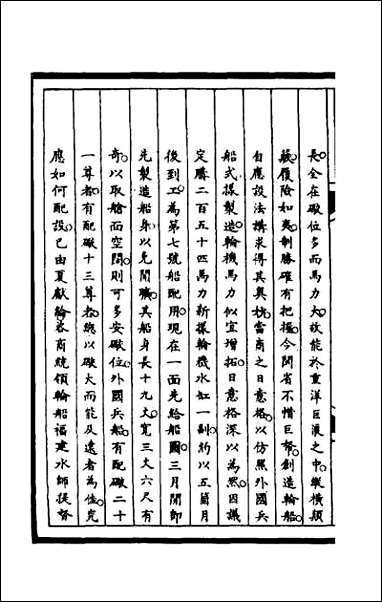 長全在礮位多而馬力大故能於重洋巨浪之中縱橫顛
簸履險如夷制勝確有把握今閩省不惜巨帑創造輪船
自應設法構求得其奧妙當商之日意格以仿照外國兵
船式樣製造輪機馬力似宜增拓日意格深以為然因議
定購二百五十匹馬力新樣輪機水缸一副約以五箇月
後到工為第七號船配用現在一面先給船圖三月開即
先製造船身以免閒曠其船身長十九丈寬三丈六尺有
奇以取艙面空闊則可多安礮位外國兵船有配礮二十
一尊者有配礮十三尊者總以礮大而能及遠者為佳究
應如何配設已由夏獻綸咨商統領輪船福建水師提督